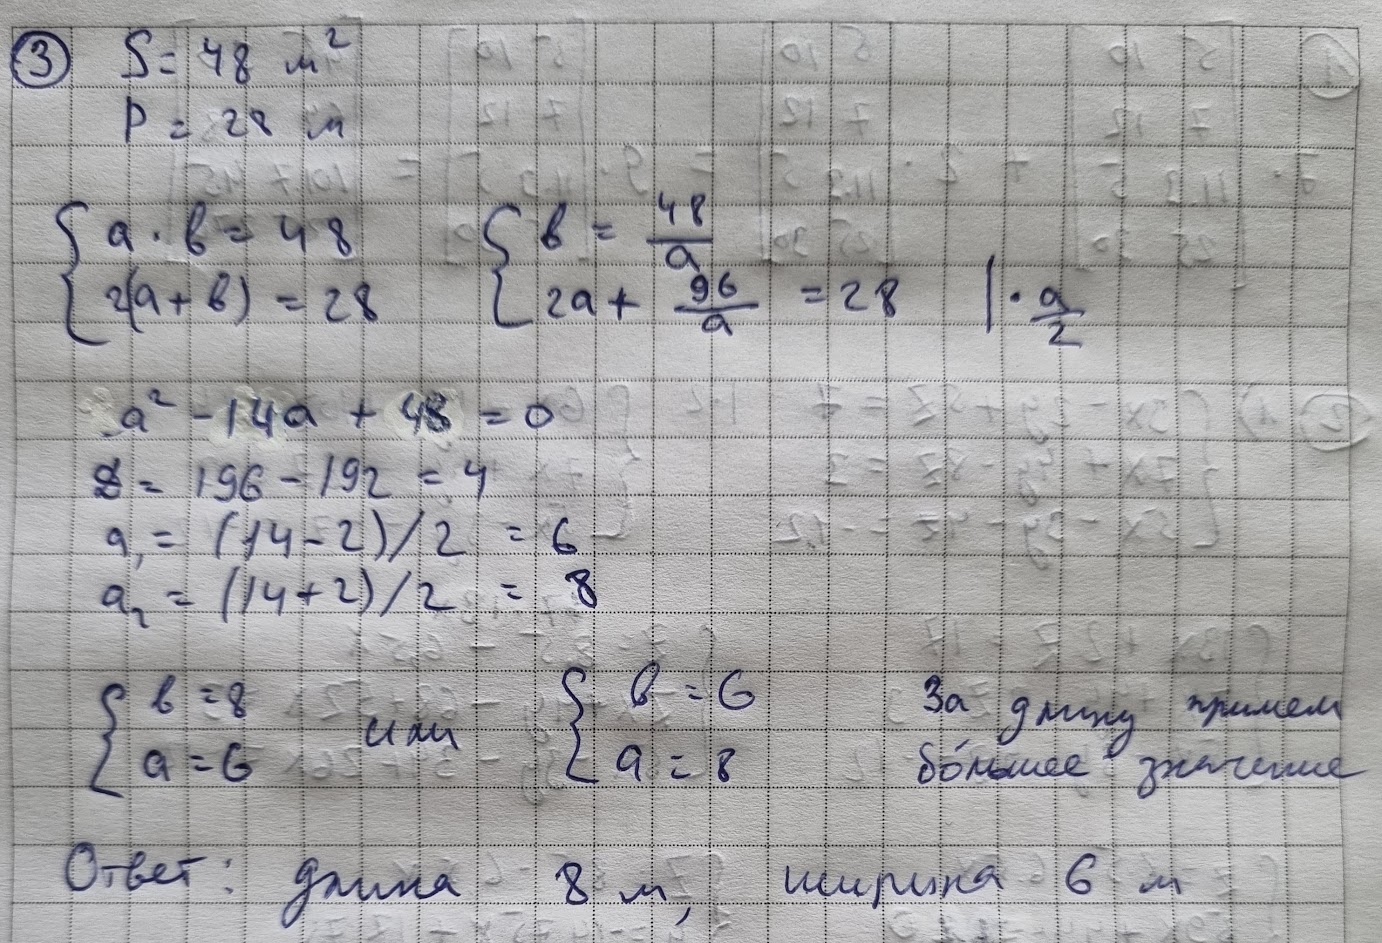 3 S = 48 м²
P = 28 м
{ a · b = 48 { b = 48/a
2(a + b) = 28 2a + 96/a = 28 | · a/2
a² - 14a + 48 = 0
D = 196 - 192 = 4
a₁ = (14 - 2)/2 = 6
a₂ = (14 + 2)/2 = 8
{ b = 8 или { b = 6 За длину примем
a = 6 a = 8 бо́льшее значение
Ответ: длина 8 м, ширина 6 м